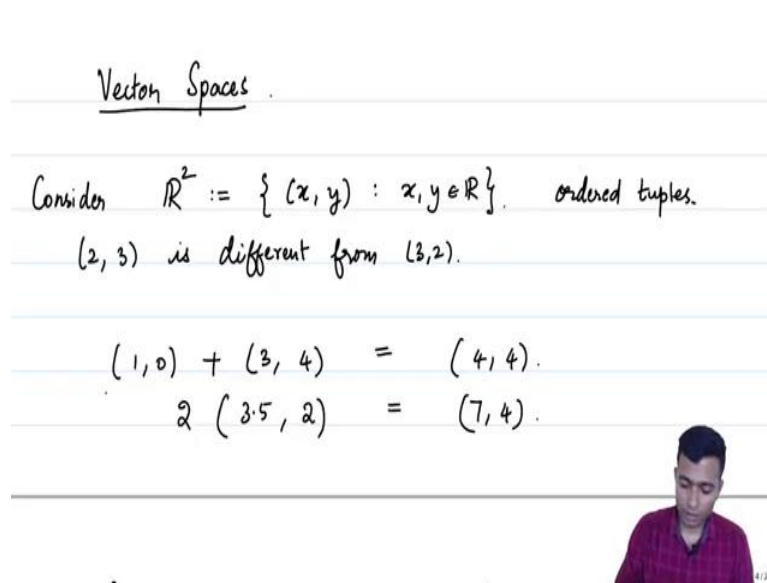 Vector Spaces.
Consider ℝ² := { (x, y) : x, y ∈ ℝ}. ordered tuples.
(2, 3) is different from (3,2).
(1,0) + (3, 4) = (4,4).
2 (3.5, 2) = (7,4).